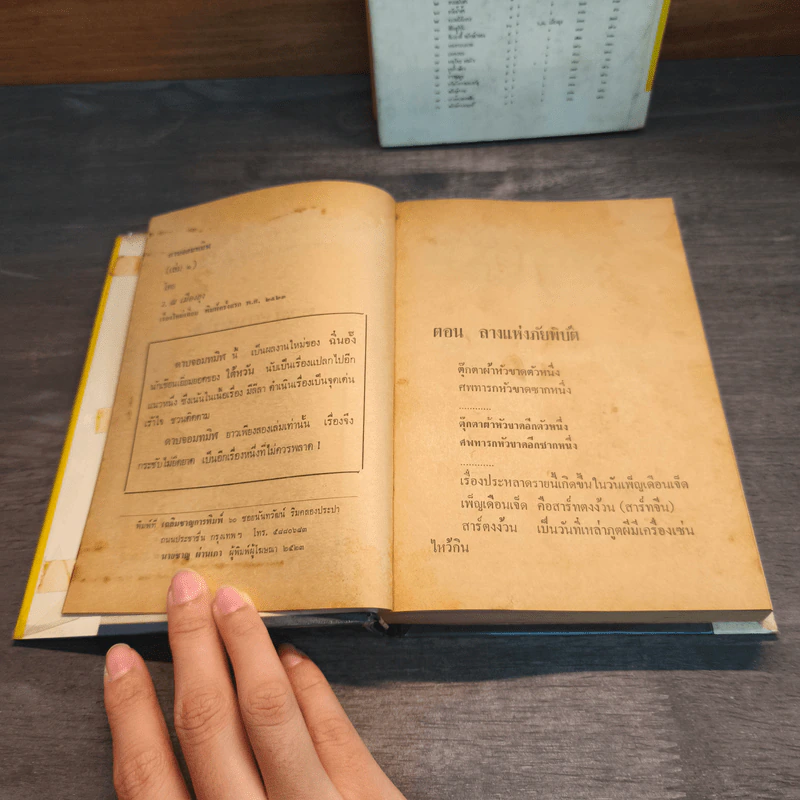 ดาบจอมทมิฬ
(เล่ม ๑)
โดย
ว. ณ เมืองลุง
เรื่องใหม่เอี่ยม พิมพ์ครั้งแรก พ.ศ. ๒๕๒๓
ดาบจอมทมิฬ นี้ เป็นผลงานใหม่ของ ฉิ่นอัง
นักเขียนเยี่ยมยอดของ ไต้หวัน นับเป็นเรื่องแปลกไปอีก
แนวหนึ่ง ซึ่งเน้นในเนื้อเรื่อง มีลีลา ดำเนินเรื่องเป็นจุดเด่น
เร้าใจ ชวนติดตาม
ดาบจอมทมิฬ ยาวเพียงสองเล่มเท่านั้น เรื่องจึง
กระชับไม่ยืดยาด เป็นอีกเรื่องหนึ่งที่ไม่ควรพลาด !
พิมพ์ที่ เฉลิมชาญการพิมพ์ ๖๐ ซอยนันทวัฒน์ ริมคลองประปา
ถนนประชาชื่น กรุงเทพฯ โทร. ๕๘๘๐๖๔๓
นายชาญ ผ่านเภา ผู้พิมพ์ผู้โฆษณา ๒๕๒๓
ตอน ลางแห่งภัยพิบัติ
ตุ๊กตาผ้าหัวขาดตัวหนึ่ง
ศพทารกหัวขาดซากหนึ่ง
............
ตุ๊กตาผ้าหัวขาดอีกตัวหนึ่ง
ศพทารกหัวขาดอีกซากหนึ่ง
............
เรื่องประหลาดรายนี้เกิดขึ้นในวันเพ็ญเดือนเจ็ด
เพ็ญเดือนเจ็ด คือสาร์ทตงง้วน (สาร์ทจีน)
สาร์ตงง้วน เป็นวันที่เหล่าภูตผีมีเครื่องเซ่น
ไหว้กิน